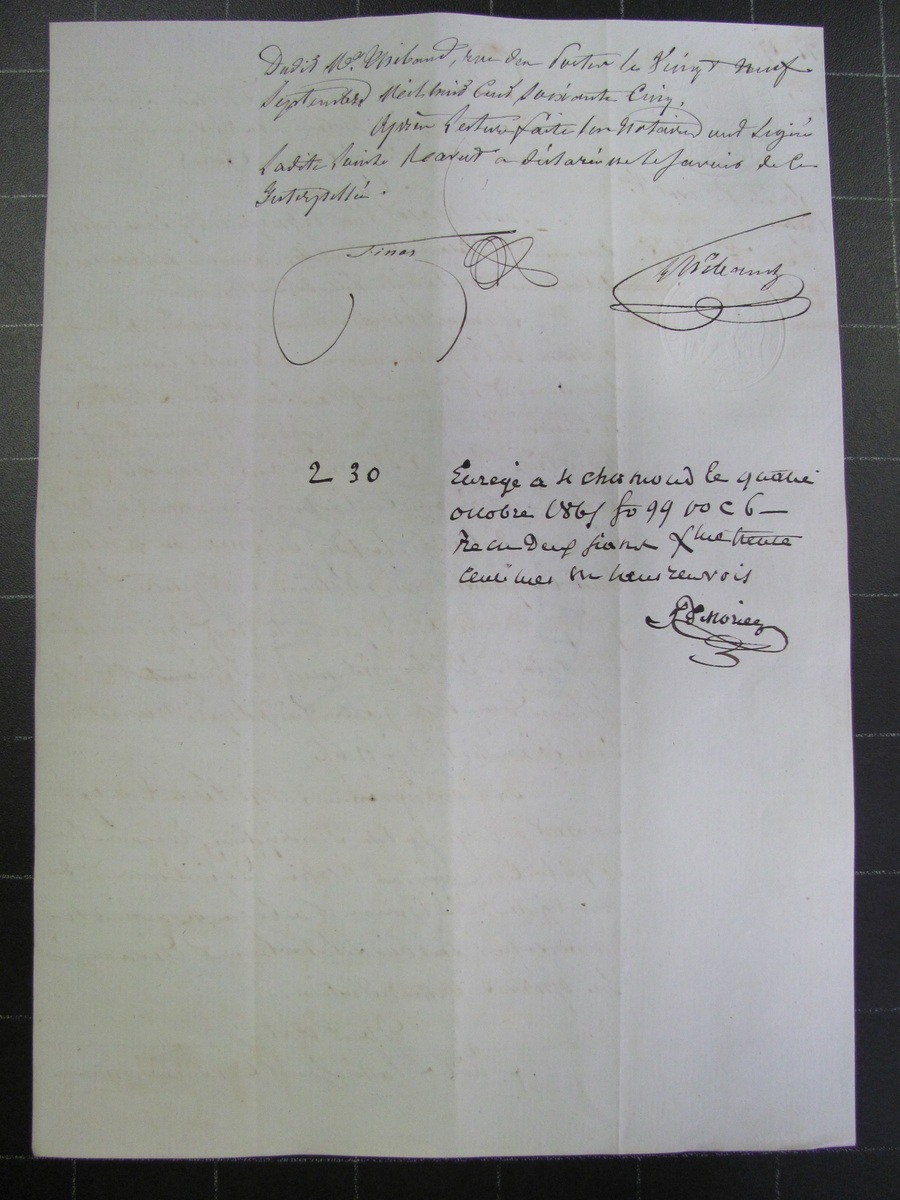 Dudit Me Thibaud, rue du le Vingt neuf
Septembre Mil huit Cent Soixante Cinq.
Après Lecture faite les Notaires ont Signé
Ladite a déclaré ne le savoir de ce
Interpellée.
Finas
2 30
Enregé a St chamond le quatre
octobre 1865 fo 99 vo c 6
Recu Deux francs trente
centimes renvois